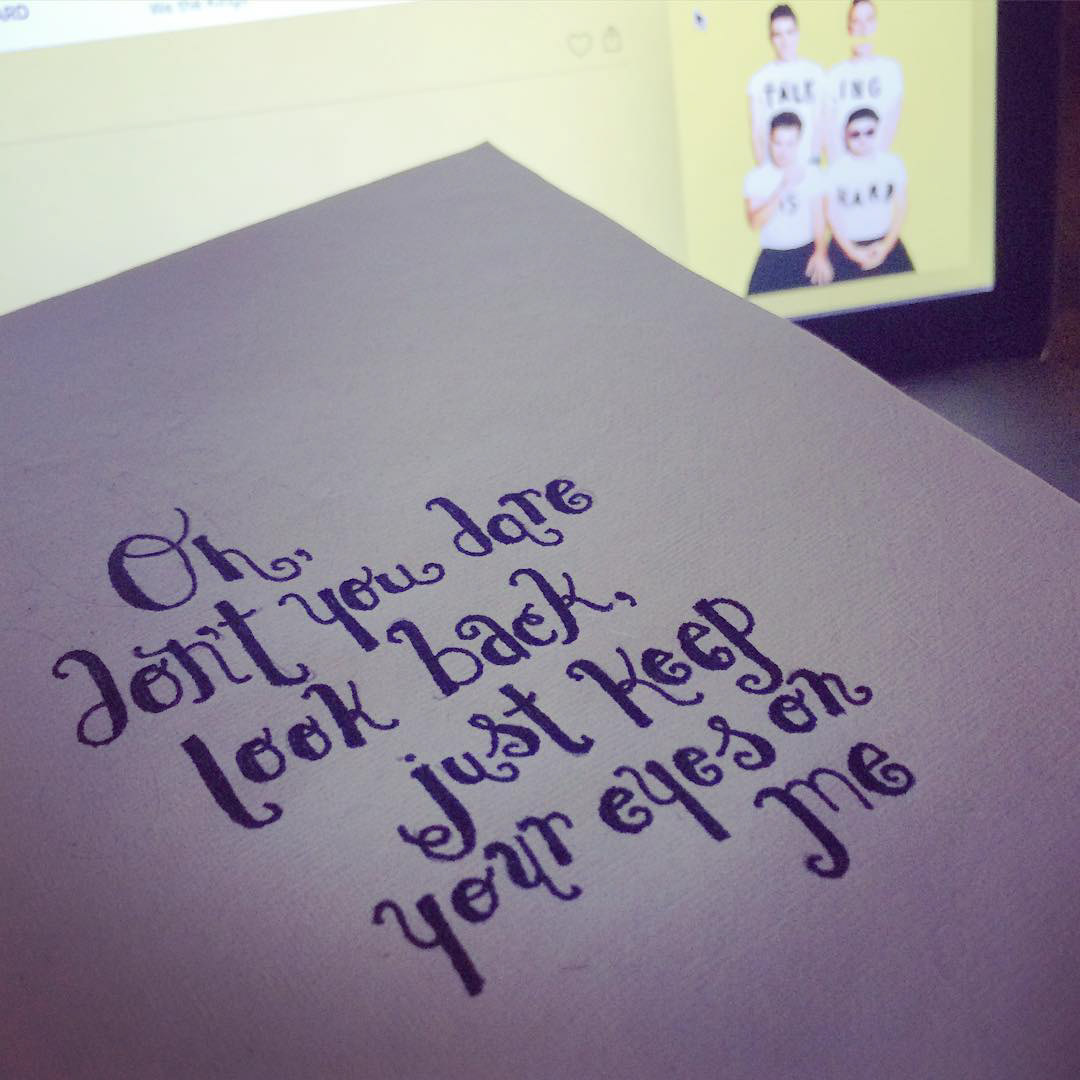 ARD
We the Kings
TALK ING
IS HARD
Oh,
don't you dare
look back,
just keep
your eyes on
me